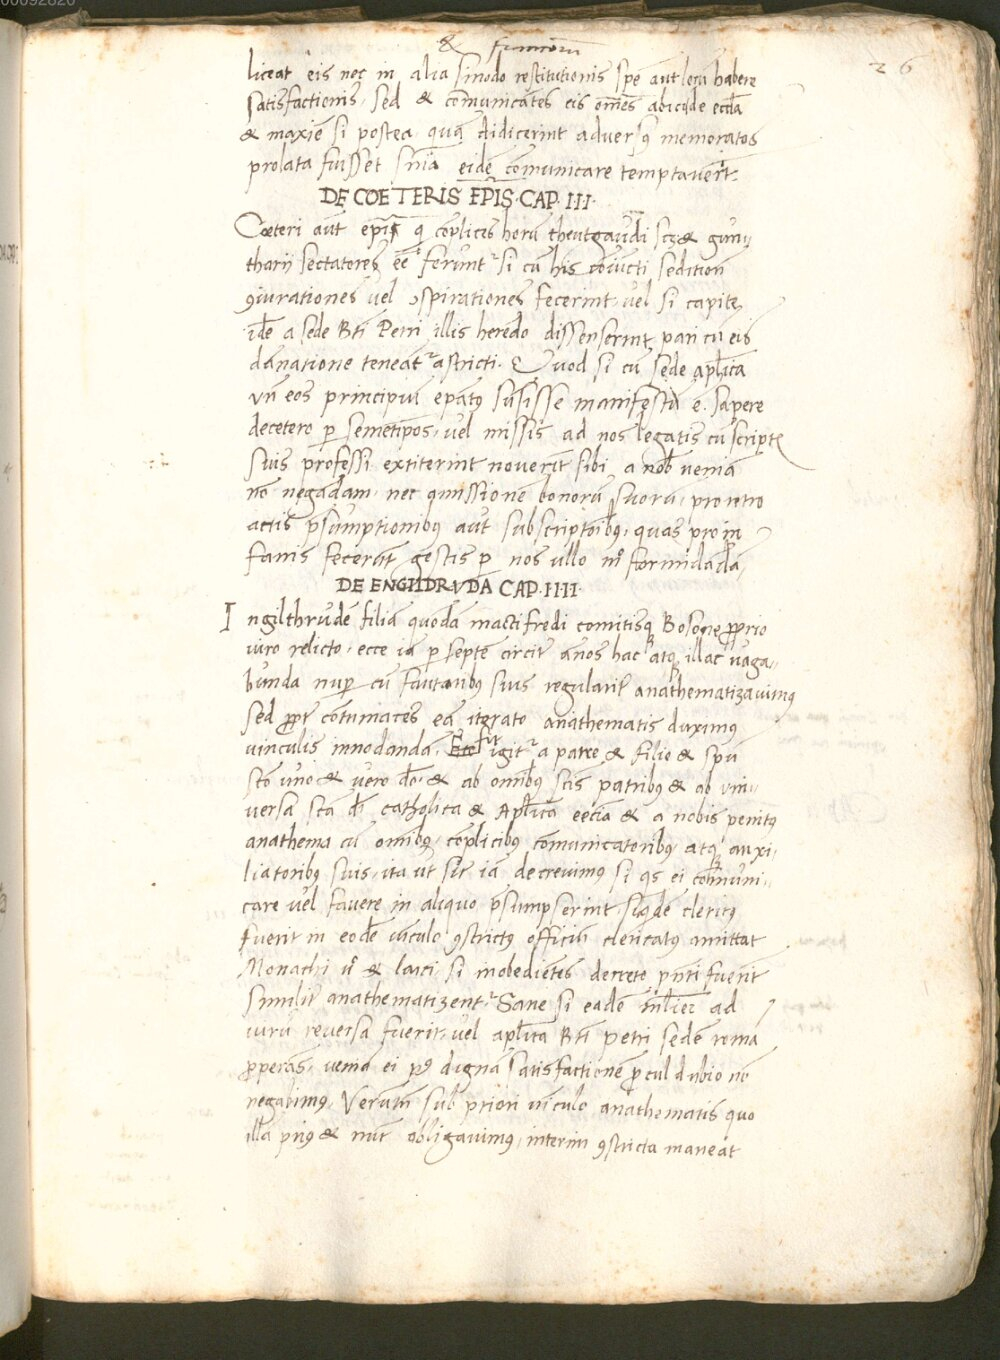 26
liceat eis nec in alia sinodo restitutionis spē aut locū habere
satisfactionis, sed & comunicātes eis om̄es abicide eccl̄a
& maxīe si postea quā didicerint adversꝰ memoratos
prolata fuisset sn̄ia eidē comunicare temptaverīt.
DE COETERIS EPIS. CAP. III.
Cœteri aūt ep̄is q̄ cōplices horū theutgaudi sc̄z & gun
tharij sectatores ēe ferunt᷑ si cū his cōiūcti seditioñ
ꝯiurationes vel ꝯspirationes fecerint vel si capite
idē a sede Bt̄i Petri illis herēdo dissenserint, pari cū eis
dānatione teneāt᷑ astricti. Quod si cū sede apl̄ica
vn̄ eos principiū ep̄atꝰ sūsisse manifestū ē. sapere
decetero p̱ semetip̄os, vel missis ad nos legatis cū scriptꝭ
suis professi extiterint noverīt sibi a nob̄ veniā
nō negādam, nec
actis p̄sumptionibꝰ aut subscriptōibꝰ, quas
fanis fecerūt gestis p̱ nos ullo mͦ formidādā
DE ENGILDRVDA CAP. IIII.
Ingilthrudē filiā quodā mactifredi comitisq̱ Bosone ꝓprio
viro relicto, ecce iā p̱ septē circit̄ ānos hac atq̱ illac vaga
bunda nup̱ cū fautoribꝰ suis regularit̄ anathematizavimꝰ
sed ꝓpt̄ cōtumaces eā iterato anathematis duximꝰ
vinculis innodandā. sit igit᷑ a patre & filio & spū
scō uno & vero dō. & ab omībꝰ scīs patribꝰ & ab vni
versa scā dī catholica & Apl̄ica eccīa & a nobis penitꝰ
anathema cū omībꝰ cōplicibꝰ comunicatoribꝰ atq̱ auxi
liatoribꝰ suis, ita ut sic̄ iā decrevimꝰ si qs ei cōmuni
care vel favere in aliquo p̄sumpserint, siqdē clericꝰ
fuerit in eodē vīculo ꝯstrictꝰ officiū clericatꝰ amittat
Monachi vͦ & laici si inobediētes decreto p̄nti fuerīt
similit̄ anathematizent᷑. Sane si eadē mīlier ad
virū reversa fuerit, vel apl̄ica Bt̄i petri sedē roma
ꝓperās, veniā ei pꝰ dignā satisfactionē ꝓcul dubio nō
negabimꝰ. Verum sub priori vīculo anathematis quo
illā priꝰ & nūc obligavimꝰ, interim ꝯstricta maneat